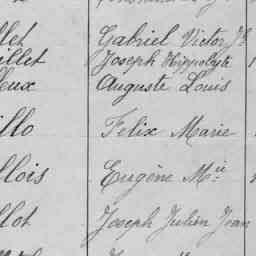 llet Gabriel Victor Jh
illet Joseph Hippolyte
eux Auguste Louis
illo Felix Marie
llois Eugène Mie
llot Joseph Julien Jean